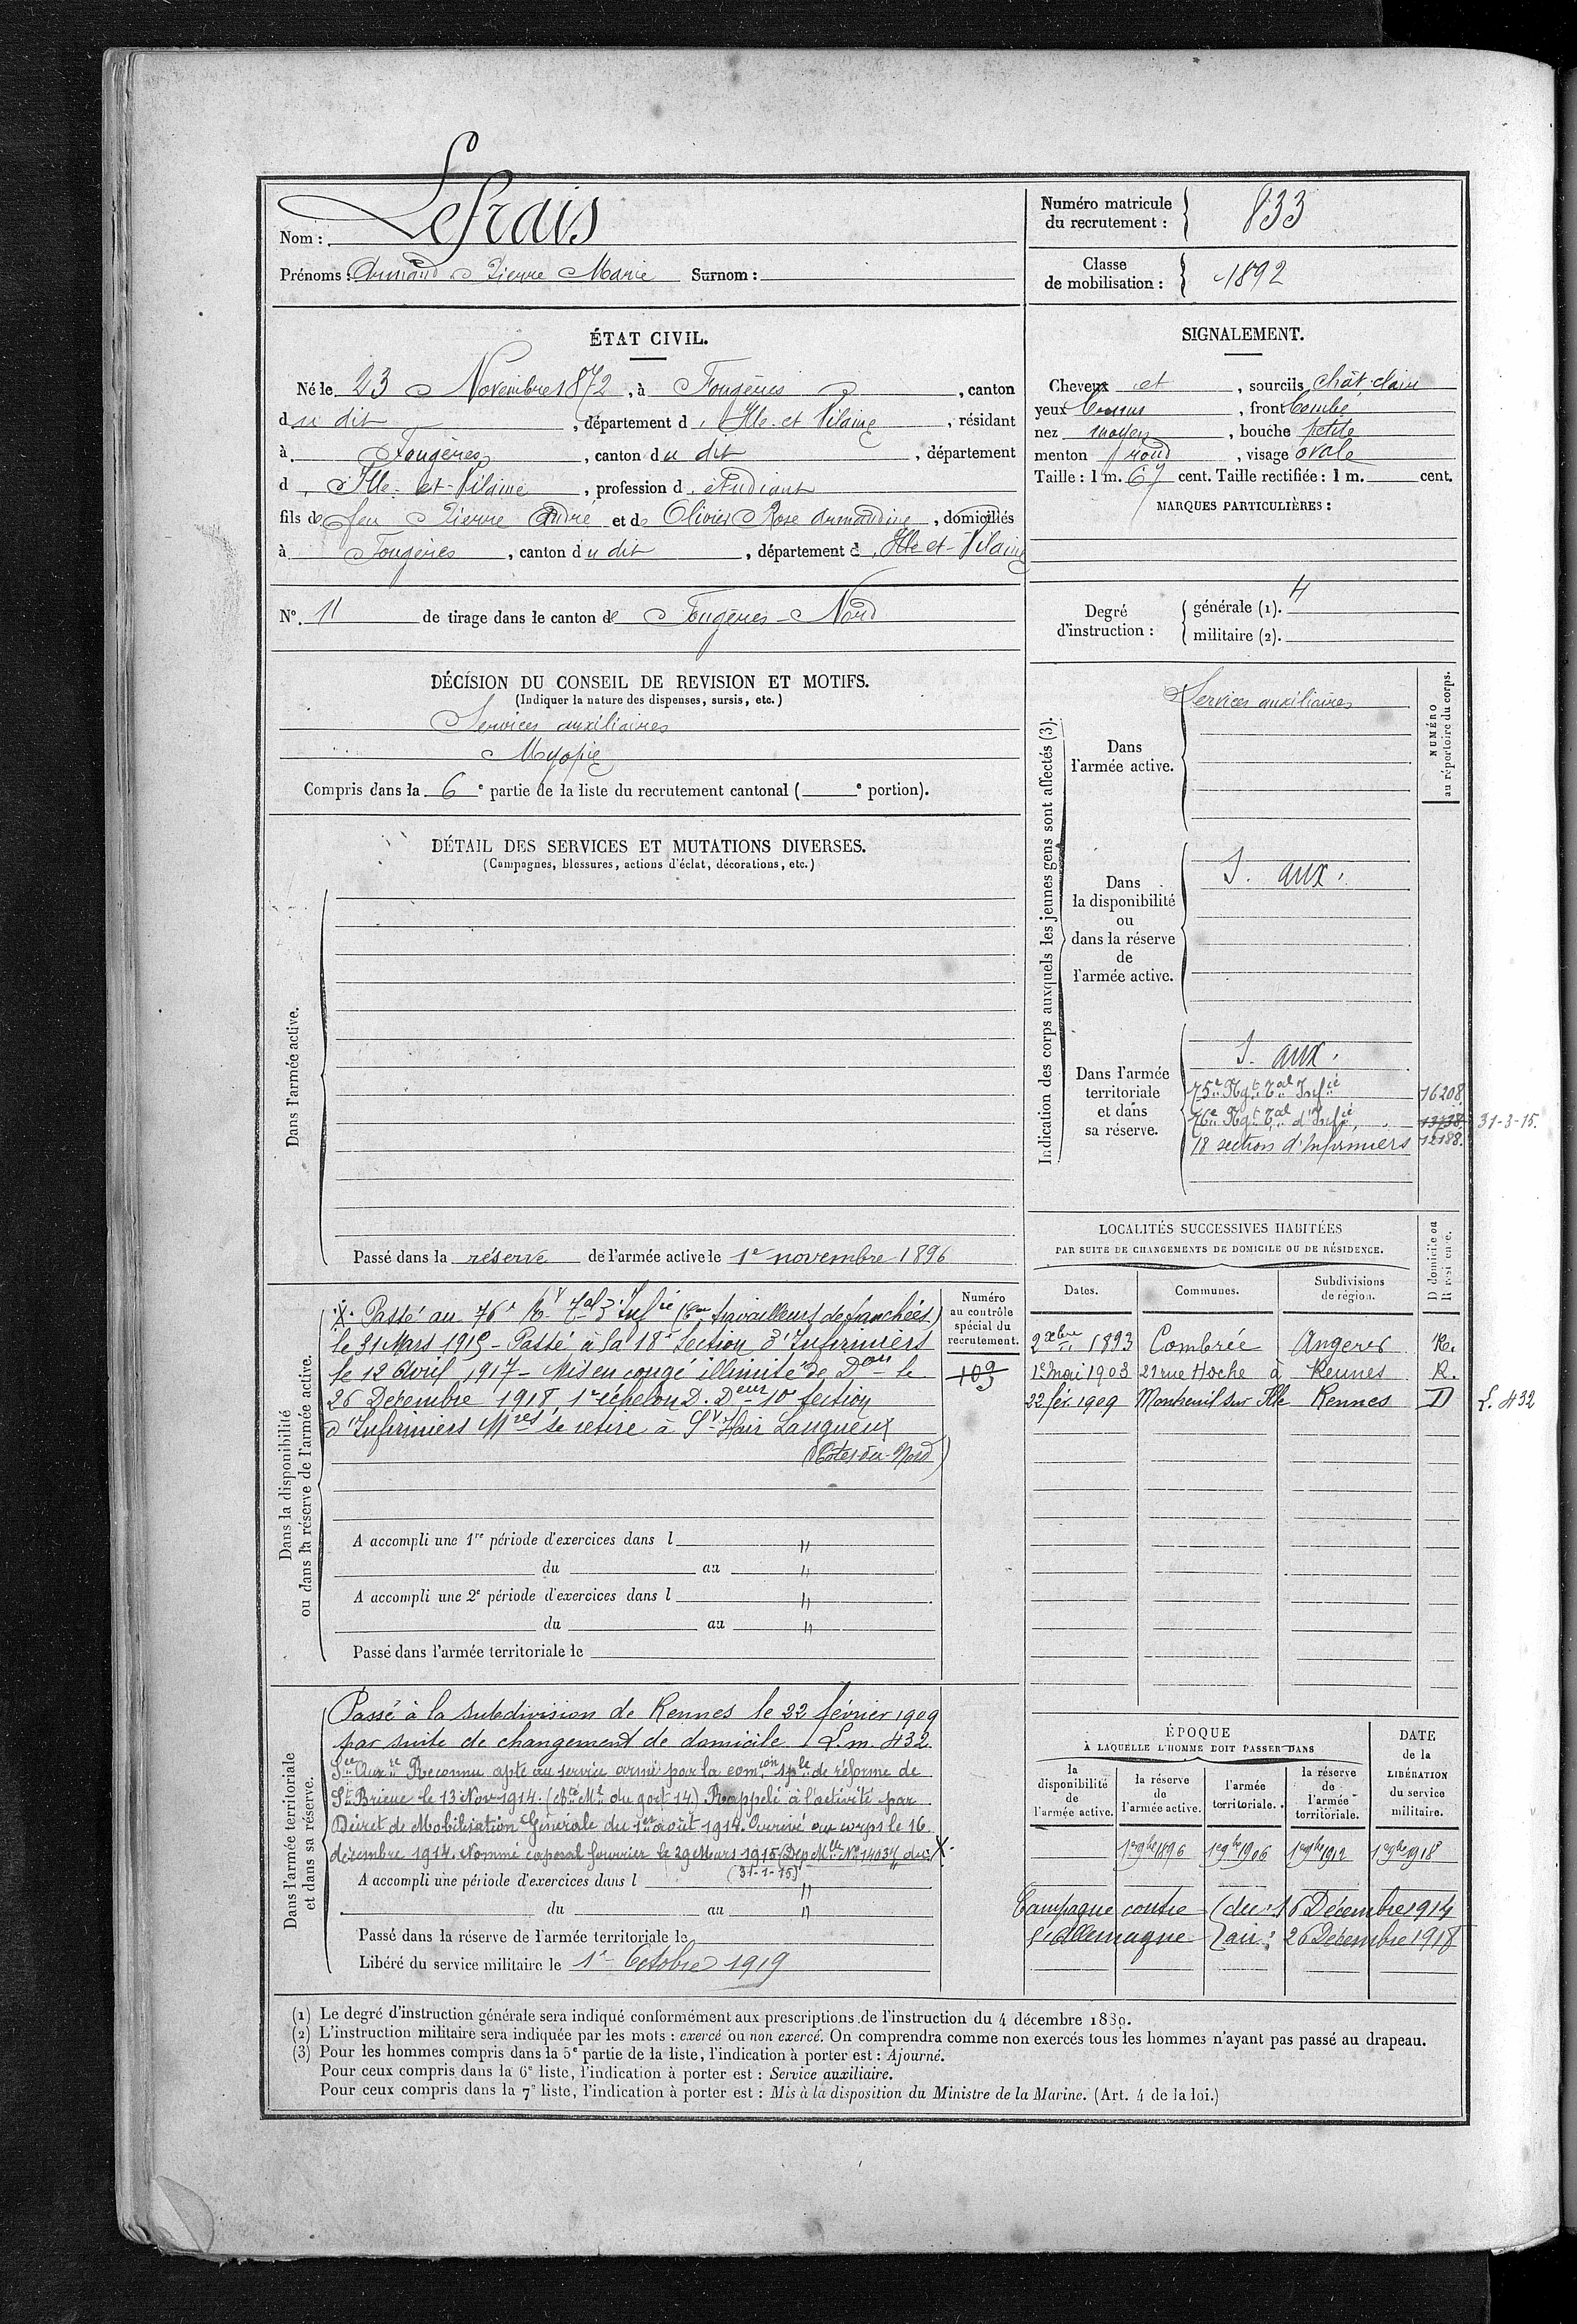 Nom : Lefrais
Prénoms : Armand Pierre Marie Surnom :
Numéro matricule
du recrutement : 833
Classe
de mobilisation : 1892
ÉTAT CIVIL.
Né le 23 Novembre 1872, à Fougères, canton
du dit, département d'Ille-et-Vilaine, résidant
à Fougères, canton du dit, département
d'Ille-et-Vilaine, profession d'étudiant
fils de feu Pierre André et de Olivier Rose Armandine, domiciliés
à Fougères, canton du dit, département d'Ille-et-Vilaine
N°. 11 de tirage dans le canton de Fougères-Nord
SIGNALEMENT.
Cheveux et, sourcils chât. clairs
yeux, front bombé
nez moyen, bouche petite
menton rond, visage ovale
Taille : 1 m. 67 cent. Taille rectifiée : 1 m. cent.
MARQUES PARTICULIÈRES :
Degré
d'instruction :
générale (1). 4
militaire (2).
DÉCISION DU CONSEIL DE REVISION ET MOTIFS.
(Indiquer la nature des dispenses, sursis, etc.)
Services auxiliaires
Myopie
Compris dans la 6e partie de la liste du recrutement cantonal ( e portion).
DÉTAIL DES SERVICES ET MUTATIONS DIVERSES.
(Campagnes, blessures, actions d'éclat, décorations, etc.)
Dans l'armée active.
Passé dans la réserve de l'armée active le 1e novembre 1896
Indication des corps auxquels les jeunes gens sont affectés (3).
NUMÉRO
au répertoire du corps.
Dans
l'armée active.
Services auxiliaires
Dans
la disponibilité
ou
dans la réserve
de
l'armée active.
S. aux.
Dans l'armée
territoriale
et dans
sa réserve.
S. aux.
75e Rgt Tal Infie 16208
76e Rgt Tal d'Infie, 13738 31-3-15.
18 section d'Infirmiers 12188.
Dans la disponibilité
ou dans la réserve de l'armée active.
Numéro
au contrôle
spécial du
recrutement.
109
3
X. Passé au 76e Rt Tal d'Infie (Con travailleurs de tranchées)
le 31 Mars 1915 - Passé à la 18e Section d'Infirmiers
le 12 Avril 1917 - Mis en congé illimité de Don le
26 Décembre 1918, 1er échelon D. Deur 10e Section
d'Infirmiers Mres se retire à St Hair Langueux
(Côtes-du-Nord)
A accompli une 1re période d'exercices dans l "
du au "
A accompli une 2e période d'exercices dans l "
du au "
Passé dans l'armée territoriale le
LOCALITÉS SUCCESSIVES HABITÉES
PAR SUITE DE CHANGEMENTS DE DOMICILE OU DE RÉSIDENCE.
Dates. Communes. Subdivisions de région. D domicile ou R résidence.
2 xbre 1893 Combrée Angers R.
1er mai 1903 21 rue Hoche à Rennes R.
22 fév. 1909 Montreuil sur Ille Rennes D L. 432
Dans l'armée territoriale
et dans sa réserve.
Passé à la subdivision de Rennes le 22 février 1909
par suite de changement de domicile L.m. 432.
Sce Auxre Reconnu apte au service armé par la comon sple de réforme de
St Brieuc le 13 Nov 1914. Rappelé à l'activité par
Décret de Mobilisation Générale du 1er août 1914. Arrivé au corps le 16
décembre 1914. Nommé caporal fourrier le 29 Mars 1915 (Dep Mlle No 14034 du X.
(31-1-15)
A accompli une période d'exercices dans l "
du au "
Passé dans la réserve de l'armée territoriale le
Libéré du service militaire le 1er Octobre 1919
ÉPOQUE
À LAQUELLE L'HOMME DOIT PASSER DANS
la
disponibilité
de
l'armée active.
la réserve
de
l'armée active.
l'armée
territoriale.
la réserve
de
l'armée
territoriale.
DATE
de la
LIBÉRATION
du service
militaire.
1er 9bre 1896 1er 9bre 1906 1er 9bre 1912 1er 9bre 1918
Campagne contre (du : 16 Décembre 1914
l'Allemagne (au : 26 Décembre 1918
(1) Le degré d'instruction générale sera indiqué conformément aux prescriptions de l'instruction du 4 décembre 1889.
(2) L'instruction militaire sera indiquée par les mots : exercé ou non exercé. On comprendra comme non exercés tous les hommes n'ayant pas passé au drapeau.
(3) Pour les hommes compris dans la 5e partie de la liste, l'indication à porter est : Ajourné.
Pour ceux compris dans la 6e liste, l'indication à porter est : Service auxiliaire.
Pour ceux compris dans la 7e liste, l'indication à porter est : Mis à la disposition du Ministre de la Marine. (Art. 4 de la loi.)